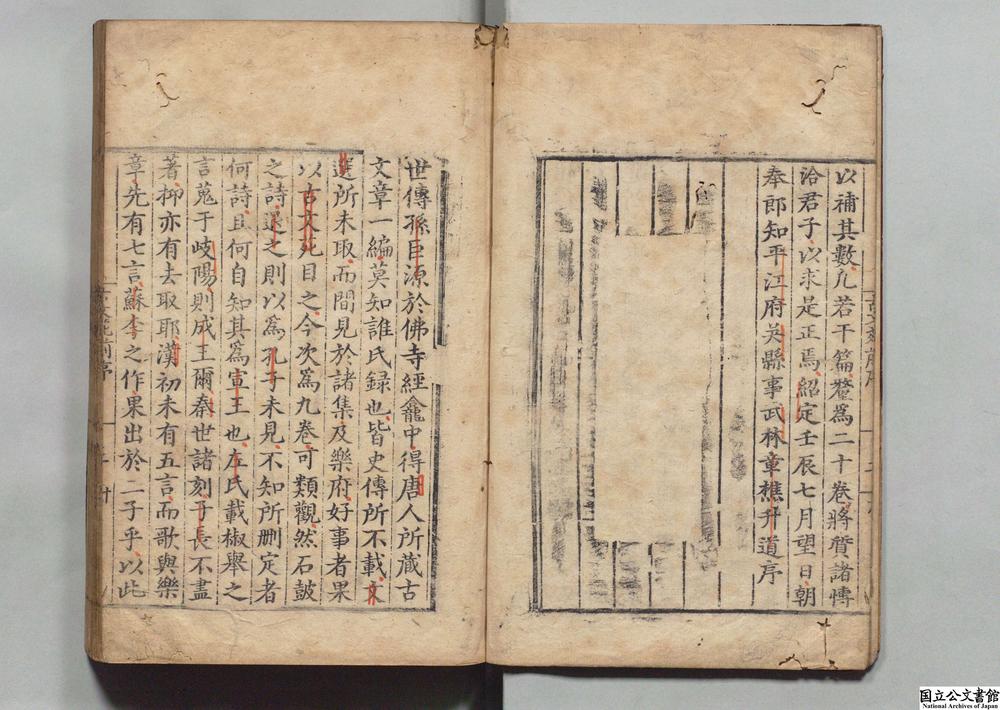 以補其數凡若干篇釐爲二十卷將質諸愽
洽君子以求是正焉紹定壬辰七月望日朝
奉郎知平江府吳縣事武林章樵升道序
世傳孫巨源於佛寺經龕中得唐人所藏古
文章一編莫知誰氏録也皆史傳所不載文
選所未取而間見於諸集及樂府好事者果
以古文苑目之今次爲九卷可類觀然石鼓
之詩退之則以爲孔子未見不知所刪定者
何詩且何自知其爲宣王也左氏載椒舉之
言蒐于岐陽則成王爾秦世諸刻子長不盡
著抑亦有去取耶漢初未有五言而歌與樂
章先有七言蘇李之作果出於二子乎以此
国立公文書館
National Archives of Japan